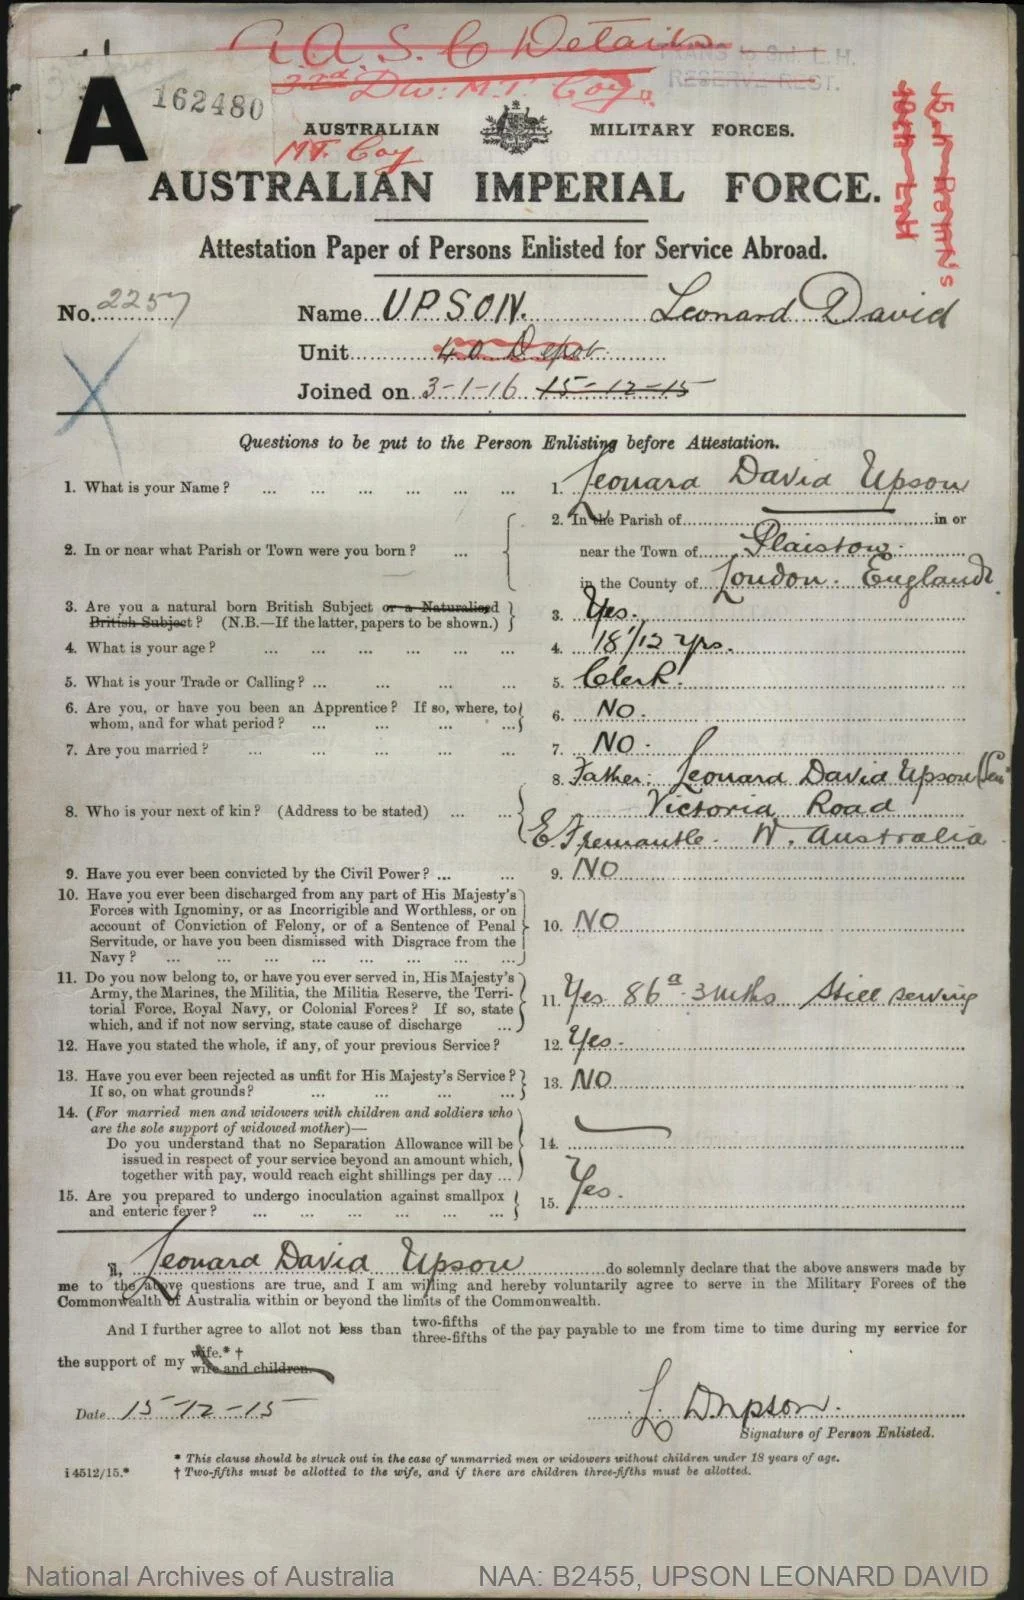 A.A.S.C Details
TRANS to 3rd L.H.
RESERVE REGT.
A
162480
Div: M.T. Coy
AUSTRALIAN MILITARY FORCES.
M.T. Coy
AUSTRALIAN IMPERIAL FORCE.
15th Reinf's
10th L.H
Attestation Paper of Persons Enlisted for Service Abroad.
No. 2257
Name UPSON. Leonard David
Unit 40 Depot
Joined on 3-1-16 15-12-15
Questions to be put to the Person Enlisting before Attestation.
1. What is your Name? ... ... ... ... ... ... 1. Leonard David Upson
2. In or near what Parish or Town were you born? ... 2. In the Parish of in or
near the Town of Plaistow.
in the County of London. England.
3. Are you a natural born British Subject or a Naturalised
British Subject? (N.B.—If the latter, papers to be shown.) 3. Yes.
4. What is your age? ... ... ... ... ... ... 4. 18 1/12 yrs.
5. What is your Trade or Calling? ... ... ... ... 5. Clerk.
6. Are you, or have you been an Apprentice? If so, where, to
whom, and for what period? ... ... ... ... 6. NO.
7. Are you married? ... ... ... ... ... 7. NO.
8. Who is your next of kin? (Address to be stated) ... ... 8. Father: Leonard David Upson (Sen
Victoria Road
E. Fremantle. W. Australia
9. Have you ever been convicted by the Civil Power? ... ... 9. NO
10. Have you ever been discharged from any part of His Majesty's
Forces with Ignominy, or as Incorrigible and Worthless, or on
account of Conviction of Felony, or of a Sentence of Penal
Servitude, or have you been dismissed with Disgrace from the
Navy? ... ... ... ... ... ... ... ... 10. NO
11. Do you now belong to, or have you ever served in, His Majesty's
Army, the Marines, the Militia, the Militia Reserve, the Terri-
torial Force, Royal Navy, or Colonial Forces? If so, state
which, and if not now serving, state cause of discharge ... 11. Yes 86a 3 mths Still serving
12. Have you stated the whole, if any, of your previous Service? 12. Yes.
13. Have you ever been rejected as unfit for His Majesty's Service?
If so, on what grounds? ... ... ... ... 13. NO
14. (For married men and widowers with children and soldiers who
are the sole support of widowed mother)—
Do you understand that no Separation Allowance will be
issued in respect of your service beyond an amount which,
together with pay, would reach eight shillings per day ... 14.
15. Are you prepared to undergo inoculation against smallpox
and enteric fever? ... ... ... ... ... ... 15. Yes.
I, Leonard David Upson do solemnly declare that the above answers made by
me to the above questions are true, and I am willing and hereby voluntarily agree to serve in the Military Forces of the
Commonwealth of Australia within or beyond the limits of the Commonwealth.
And I further agree to allot not less than two-fifths three-fifths of the pay payable to me from time to time during my service for
the support of my wife.* † wife and children.
Date 15-12-15
L. D. Upson.
Signature of Person Enlisted.
* This clause should be struck out in the case of unmarried men or widowers without children under 18 years of age.
i 4512/15.* † Two-fifths must be allotted to the wife, and if there are children three-fifths must be allotted.
National Archives of Australia NAA: B2455, UPSON LEONARD DAVID